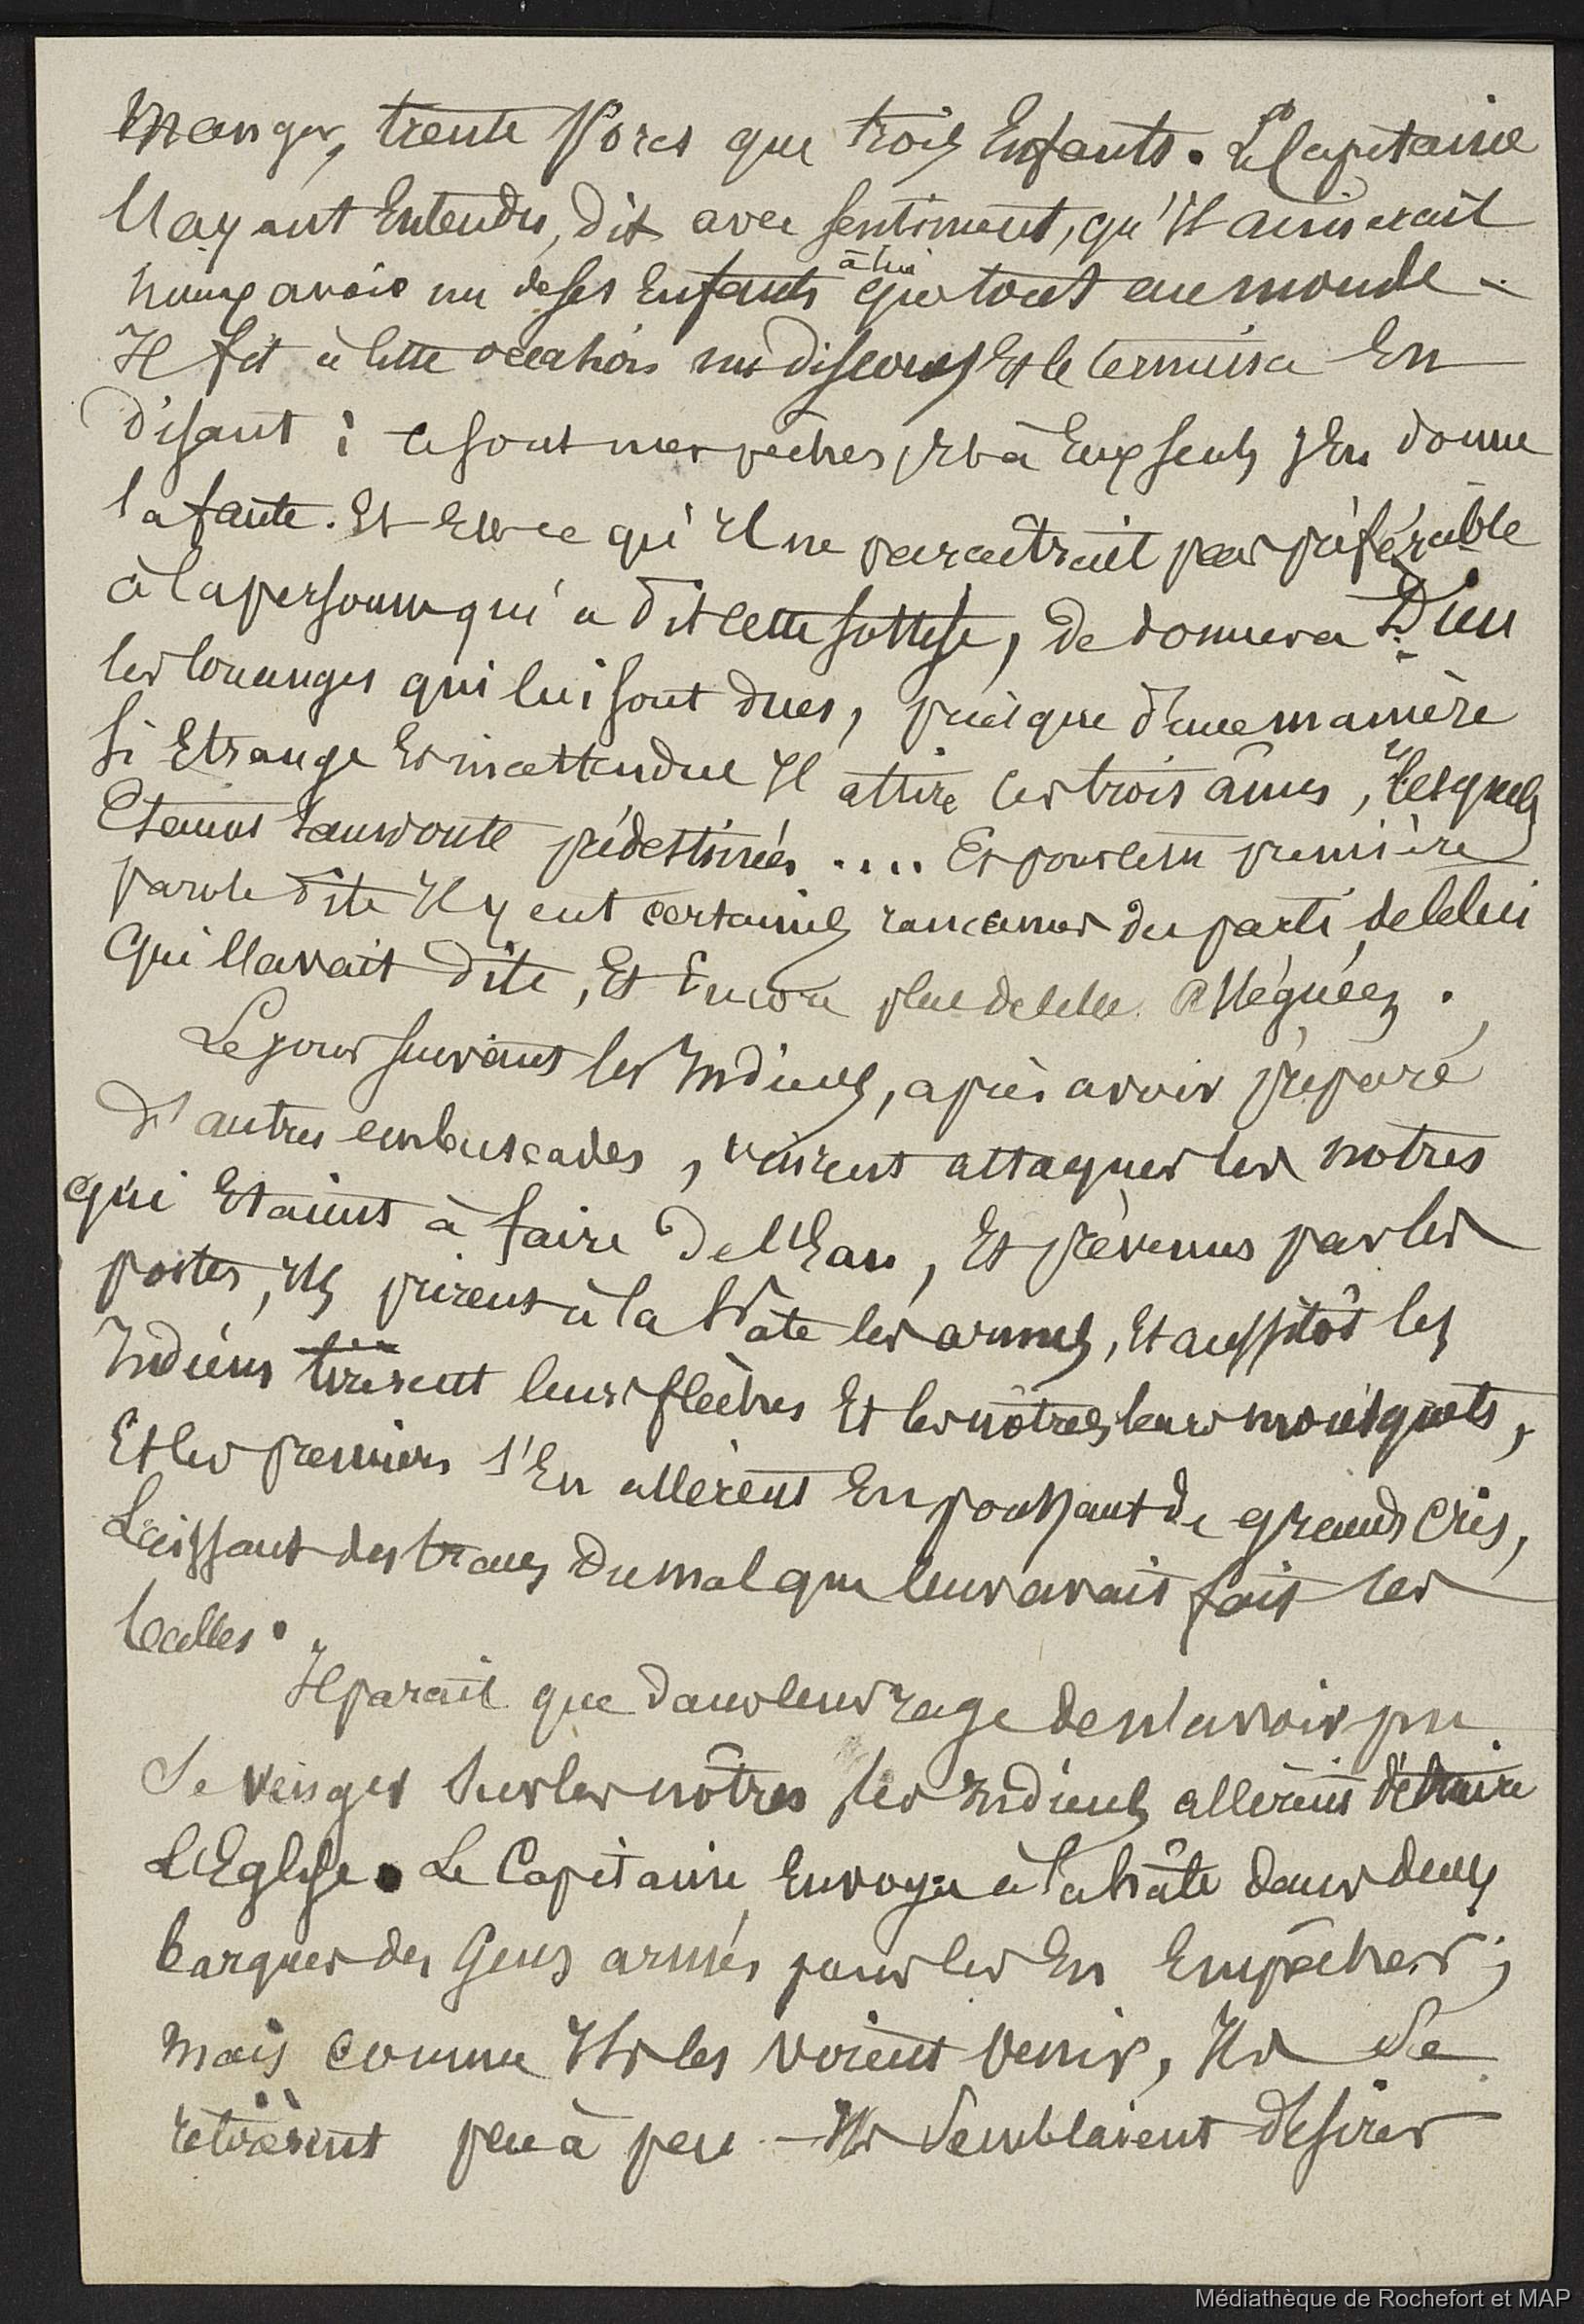 manger, trente Porcs que trois Enfants. Le Capitaine
l'ayant Entendu, dit avec sentiment, qu'Il aimerait
mieux avoir un de ses Enfants à lui que tout au monde.
Il fit à cette occasion un discours Et le termina En
disant : ce sont mes péchés, Et à Eux seuls j'En donne
la faute. Et Est-ce qu'Il ne paraîtrait pas préférable
à la personne qui a dit cette sottise, de donner a Dieu
les louanges qui lui sont dues, puisque d'une manière
si Etrange Et inattendue Il attire ces trois âmes, lesquels
Etaient sans doute prédestinés .... Et pour cette première
parole dite Il y eut certaines rancunes du parti de celui
qui l'avait dite, Et Encore plus de celle alléguées.
Le jour suivant les Indiens, après avoir préparé
d'autres embuscades, vinrent attaquer les notres
qui Etaient à faire de l'Eau, Et prévenus par les
postes, Ils prirent à la hâte les armes, Et aussitôt les
Indiens tirèrent leurs flèches Et les nôtres leurs mousquets,
Et les premiers s'En allèrent En poussant de grands cris,
Laissant des traces du mal que leur avait fait les
balles.
Il parait que dans leur rage de n'avoir pu
se venger sur les nôtres les Indiens allèrent détruire
l'Eglise. Le Capitaine Envoya à la hâte dans deux
barques des Gens armés pour les En Empêcher ;
mais comme Ils les voient venir, Ils se
retirèrent peu à peu — Ils semblaient désirer
Médiathèque de Rochefort et MAP